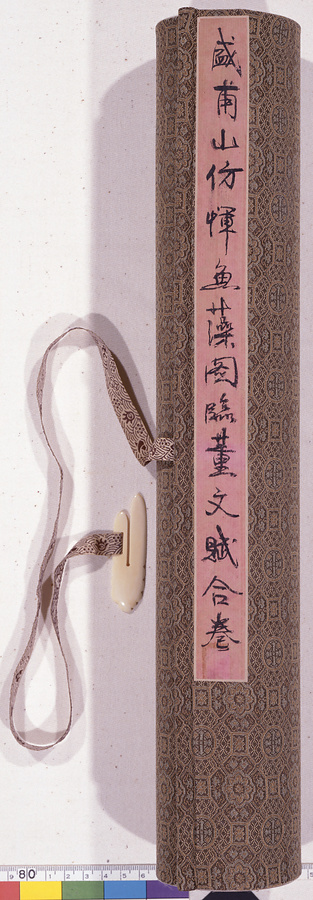 盛甫山仿惲魚藻图臨董文賦合卷
9 80 1 2 3 4 5